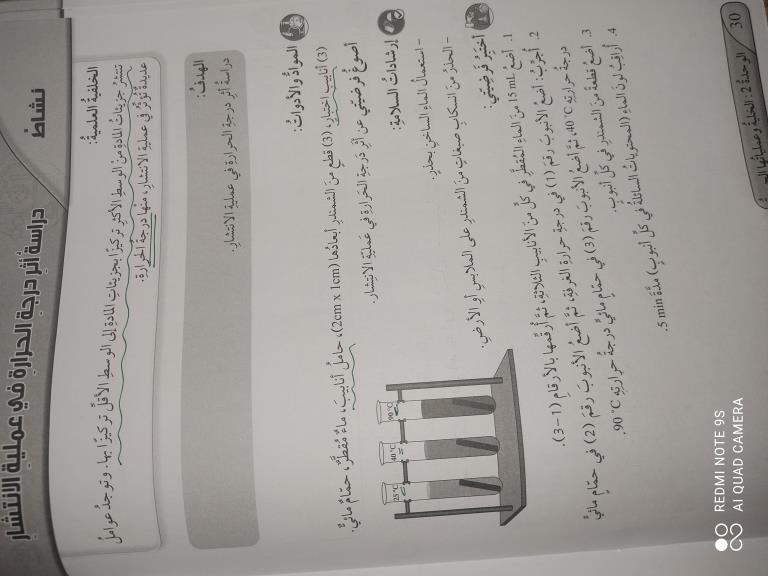 نشاط
دراسة أثر درجة الحرارة في عملية الانتشار
الخلفية العلمية:
تنتشر جزيئات المادة من الوسط الأكثر تركيزًا بجزيئات المادة إلى الوسط الأقل تركيزًا بها. وتوجد عوامل
عديدة تؤثر في عملية الانتشار، منها درجة الحرارة.
الهدف:
دراسة أثر درجة الحرارة في عملية الانتشار.
المواد والأدوات:
(3) أنابيب اختبار، (3) قطع من الشمندر أبعادها (2cm x 1cm)، حامل أنابيب، ماء مقطر، حمام مائي.
أصوغ فرضيتي عن أثر درجة الحرارة في عملية الانتشار.
إرشادات السلامة:
- استعمال الماء الساخن بحذر.
- الحذر من انسكاب صبغات من الشمندر على الملابس أو الأرض.
25 °C
40 °C
90 °C
أختبر فرضيتي:
1. أضع 15 mL من الماء المقطر في كل من الأنابيب الثلاثة، ثم أرقمها بالأرقام (1-3).
2. أجرب: أضع الأنبوب رقم (1) في درجة حرارة الغرفة، ثم أضع الأنبوب رقم (2) في حمام مائي
درجة حرارته 40 °C، ثم أضع الأنبوب رقم (3) في حمام مائي درجة حرارته 90 °C.
3. أضع قطعة من الشمندر في كل أنبوب.
4. أراقب لون الماء (المحتويات السائلة في كل أنبوب) مدة 5 min.
30
الوحدة 2: الخلية وعملياتها
REDMI NOTE 9S
AI QUAD CAMERA